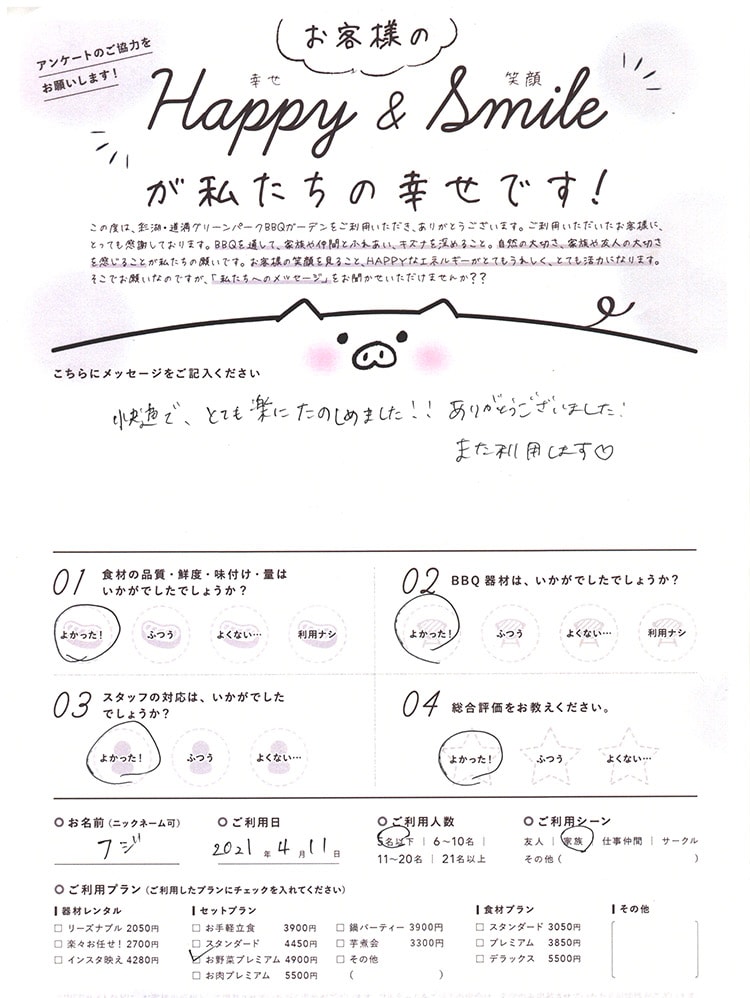 アンケートのご協力を
お願いします！
お客様の
幸せ 笑顔
Happy & Smile
が私たちの幸せです！
この度は、彩湖・道満グリーンパークBBQガーデンをご利用いただき、ありがとうございます。ご利用いただいたお客様に、
とっても感謝しております。BBQを通して、家族や仲間とふれあい、キズナを深めること。自然の大切さ、家族や友人の大切さ
を感じることが私たちの願いです。お客様の笑顔を見ること、HAPPYなエネルギーがとてもうれしく、とても活力になります。
そこでお願いなのですが、「私たちへのメッセージ」をお聞かせいただけませんか？？
こちらにメッセージをご記入ください
快適で、とても楽にたのしめました！！ ありがとうございました！
また利用します♡
01 食材の品質・鮮度・味付け・量は
いかがでしたでしょうか？
よかった！ ふつう よくない… 利用ナシ
02 BBQ器材は、いかがでしたでしょうか？
よかった！ ふつう よくない… 利用ナシ
03 スタッフの対応は、いかがでした
でしょうか？
よかった！ ふつう よくない…
04 総合評価をお教えください。
よかった！ ふつう よくない…
お名前（ニックネーム可）
フジ
ご利用日
2021年 4月 11日
ご利用人数
5名以下 | 6〜10名 |
11〜20名 | 21名以上
ご利用シーン
友人 | 家族 | 仕事仲間 | サークル
その他（ ）
ご利用プラン（ご利用したプランにチェックを入れてください）
器材レンタル
□ リーズナブル 2050円
□ 楽々お任せ！2700円
□ インスタ映え 4280円
セットプラン
□ お手軽立食 3900円
□ スタンダード 4450円
□ お野菜プレミアム 4900円
□ お肉プレミアム 5500円
□ 鍋パーティー 3900円
□ 芋煮会 3300円
□ その他
（ ）
食材プラン
□ スタンダード 3050円
□ プレミアム 3850円
□ デラックス 5500円
その他